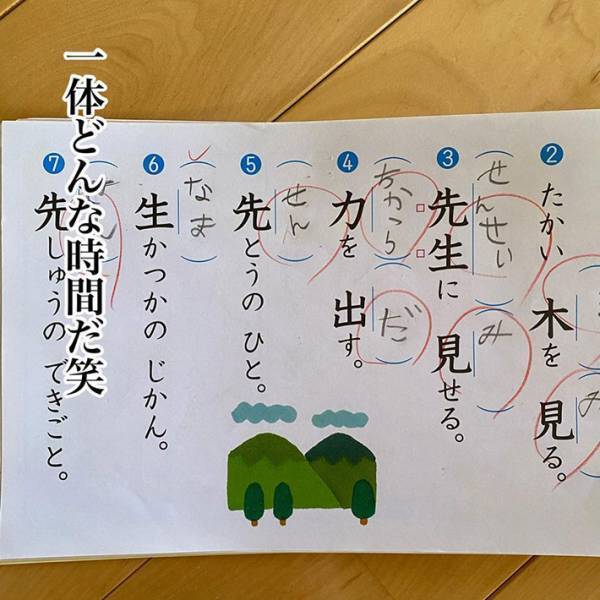 ②
たかい 木を 見る。
み
③
先生に 見せる。
せんせい
み
④
力を 出す。
ちから
だ
⑤
先とうの ひと。
せん
⑥
生かつかの じかん。
なま
⑦
先しゅうの てきごと。
一体どんな時間だ笑